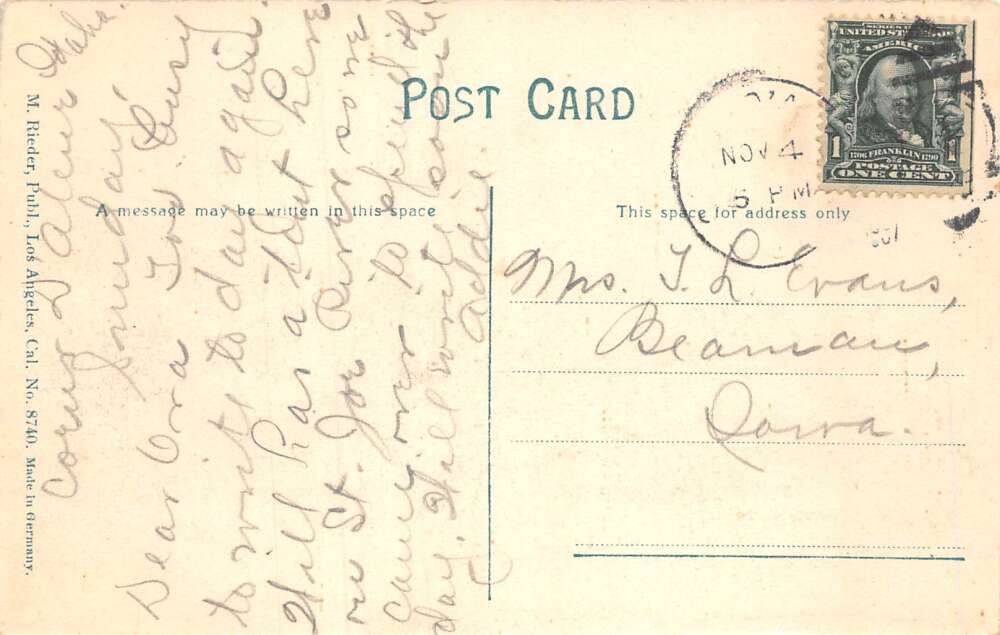 POST CARD
A message may be written in this space
This space for address only
M. Rieder, Publ., Los Angeles, Cal. No. 8740. Made in Germany.
Coeur D'Alene Idaho.
Sunday.
Dear Ora Too busy
to write to day again.
Will P. has a boat here
on St. Joe River some
came over to spend the
day. Will write soon
Addie
Mrs. T. L. Evans,
Beaman,
Iowa.
NOV 4
5 PM
1907
SERIES 1902
UNITED STATES OF
AMERICA
1706 FRANKLIN 1790
POSTAGE
1 ONE CENT 1